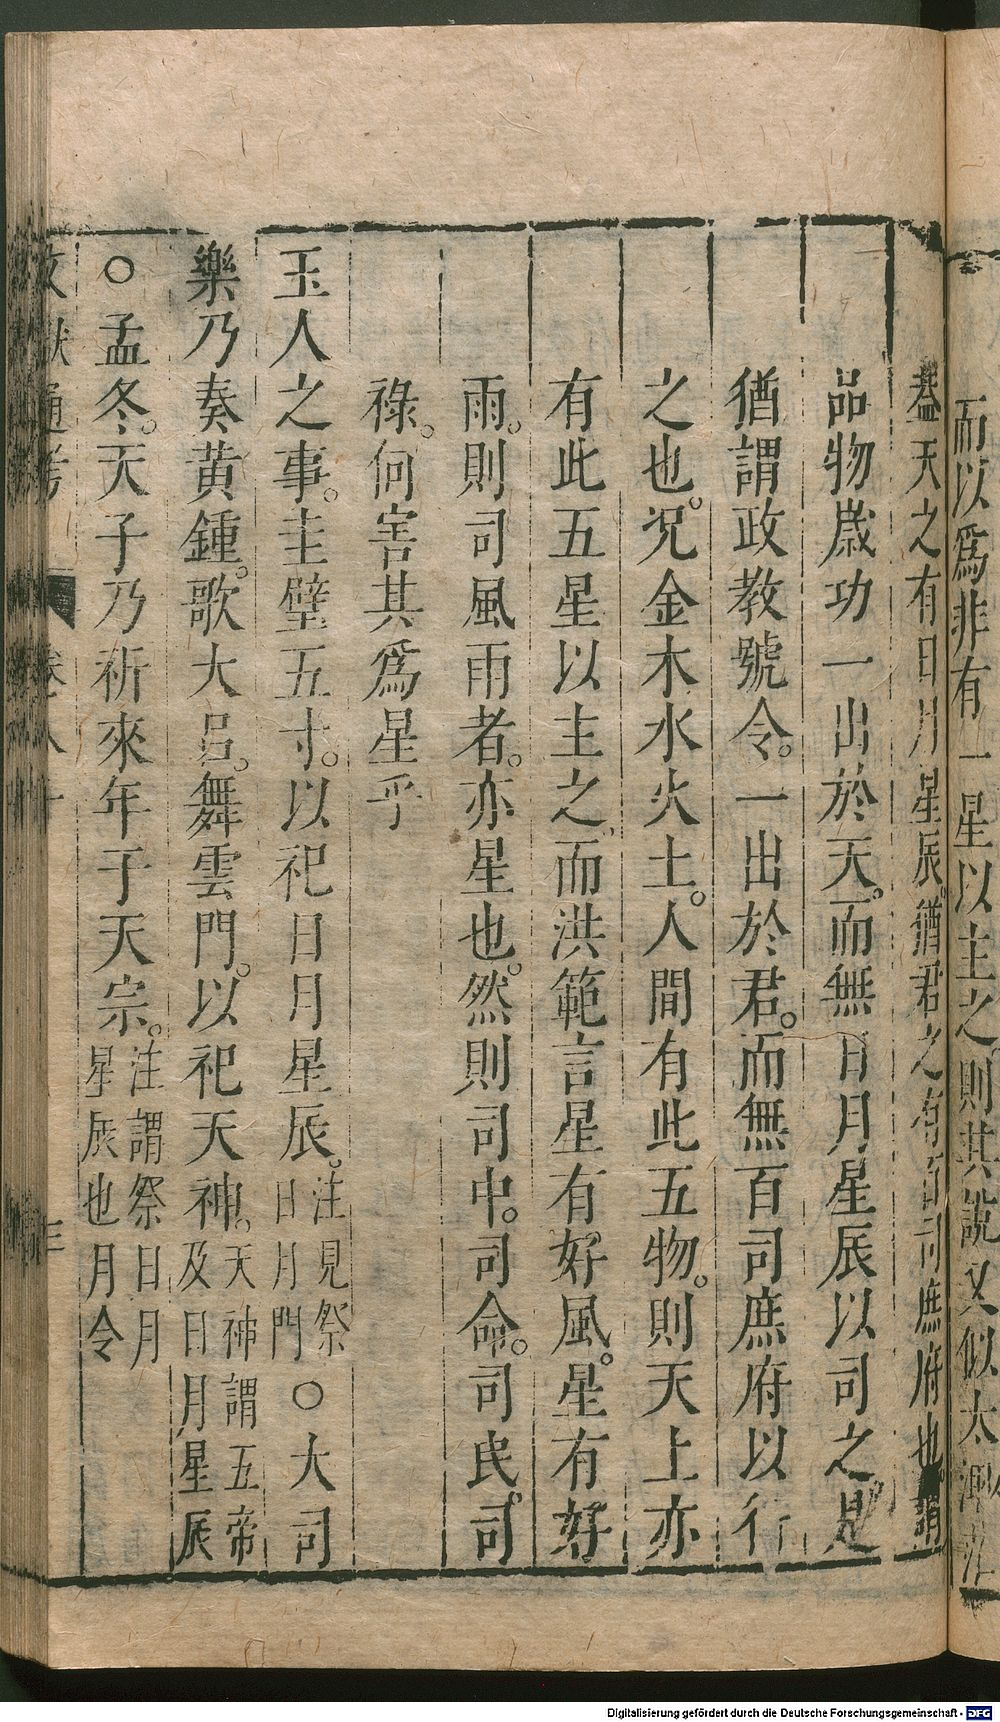 而以爲非有一星以主之則其說又似太
蓋天之有日月星辰。猶君之有百司庶府也。謂
品物歲功一出於天。而無日月星辰以司之是
猶謂政教號令。一出於君。而無百司庶府以行
之也。况金木水火土。人間有此五物。則天上亦
有此五星以主之而洪範言星有好風。星有好
雨。則司風雨者。亦星也。然則司中。司命。司民。司
祿。何害其爲星乎
玉人之事。圭璧五寸。以祀日月星辰。注見祭日月門○大司
樂乃奏黃鍾。歌大呂。舞雲門。以祀天神。天神謂五帝及日月星辰
○孟冬。天子乃祈來年于天宗。注謂祭日月星辰也月令
文獻通考 卷八十 三
Digitalisierung gefördert durch die Deutsche Forschungsgemeinschaft - DFG